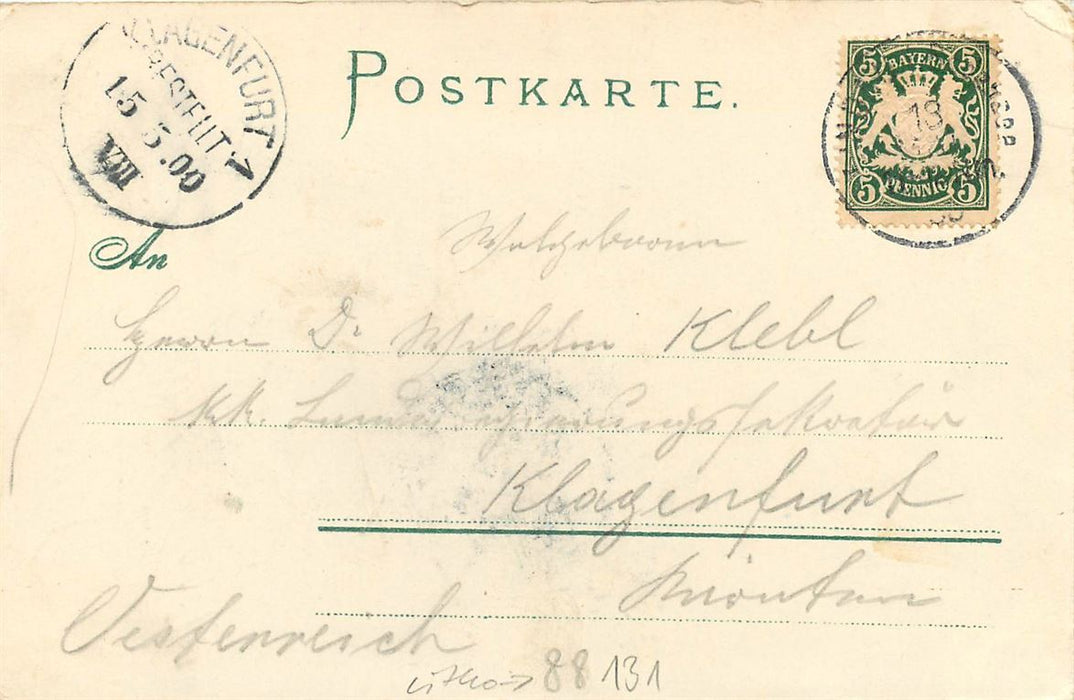 KLAGENFURT 1
BESTELLT
15 5.00
VIII
POSTKARTE.
5 BAYERN 5
13
5 PFENNIG 5
An
Wolgeboren
Herrn Dr Wilhelm Klebl
kk. Landesregierungssekretär
Klagenfurt
Kärnten
Oestenreich
88 131